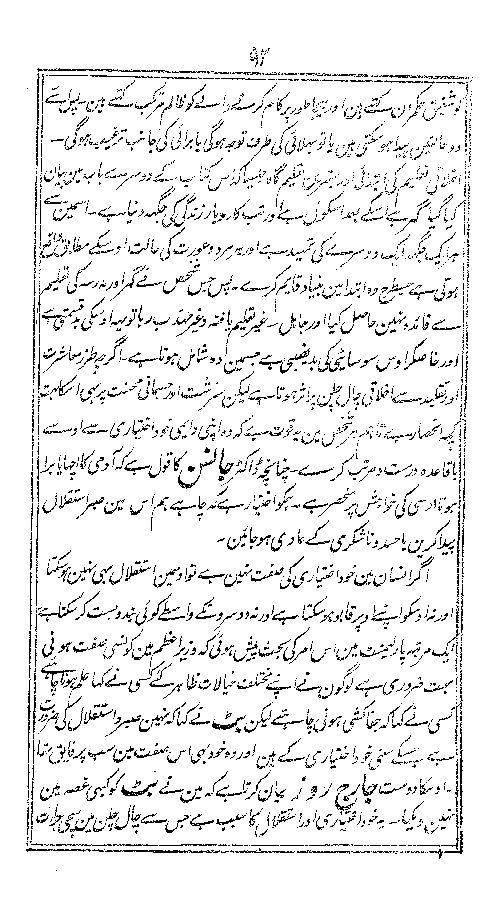 ۹۲
توشفیق حکمران کہتے ہین اور بیجا طور پر کام کرنے والے کو ظالم مرکب کہتے ہین۔ پہلی سے
دو حالتین پیدا ہو سکتی ہین یا تو بھلائی کی طرف توجہ ہو گی یا برائی کی جانب ترغیب ہو گی۔
اخلاقی تعلیم کی ابتدائی اور بہترین تعلیم گاہ جیسا کہ اس کتاب کے دوسرے باب مین بیان
کیا گیا گھر ہے اسکے بعد اسکول ہے اور تب کاروبار زندگی کی جگہ دنیا ہے۔ اسمین سے
ہر ایک جگہ ایک دوسرے کی تمہید ہے اور ہر مرد و عورت کی حالت اوسکے مطابق واقع
ہوتی ہے جسطرح وہ ابتدا مین بنیاد قایم کرے۔ پس جس شخص نے گھر اور مدرسہ کی تعلیم
سے فائدہ نہین حاصل کیا اور جاہل۔ غیر تعلیم یافتہ و غیر مہذب رہا تو یہ اوسکی بدقسمتی ہے
اور خاصکر اوس سوسائٹی کی بدنصیبی ہے جسمین وہ شامل ہوتا ہے۔ اگرچہ طرز معاشرت
اور تقلید سے اخلاقی چال چلن پر اثر ہوتا ہے لیکن سرشت اور جسمانی صحت پر بھی اسکا بہت
کچھ انحصار ہے تاہم ہر شخص مین یہ قوت ہے کہ وہ اپنی دایمی خود اختیاری سے اوسے
باقاعدہ درست و مرتب کرے۔ چنانچہ ڈاکٹر جانسن کا قول ہے کہ آدمی کا اچھا یا برا
ہونا اوسی کی خواہش پر منحصر ہے۔ ہمکو اختیار ہے کہ چاہے ہم اس مین صبر و استقلال
پیدا کرین یا حسد و ناشکری کے عادی ہو جائین۔
اگر انسان مین خود اختیاری کی صفت نہین ہے تو اوسمین استقلال بھی نہین ہو سکتا
اور نہ اوسکو اپنے اوپر قابو ہو سکتا ہے اور نہ دوسرونکے واسطے کوئی بندوبست کر سکتا ہے
ایک مرتبہ پارلیمنٹ مین اس امر کی بحث پیش ہوئی کہ وزیر اعظم مین کونسی صفت ہونی
بہت ضروری ہے لوگون نے اپنے مختلف خیالات ظاہر کئے کسی نے کہا علم ہونا چاہئے
کسی نے کہا کہ جفاکشی ہونی چاہئے لیکن پٹ نے کہا کہ نہین صبر و استقلال کی ضرورت
ہے جسکے معنی خود اختیاری کے ہین اور وہ خود بھی اس صفت مین سب پر فایق تھا
۔ اوسکا دوست جارج روز بیان کرتا ہے کہ مین نے پٹ کو کبھی غصہ مین
نہین دیکھا۔ یہ خود اختیاری اور استقلال کا سبب ہے جس سے چال چلن مین سچی جرات